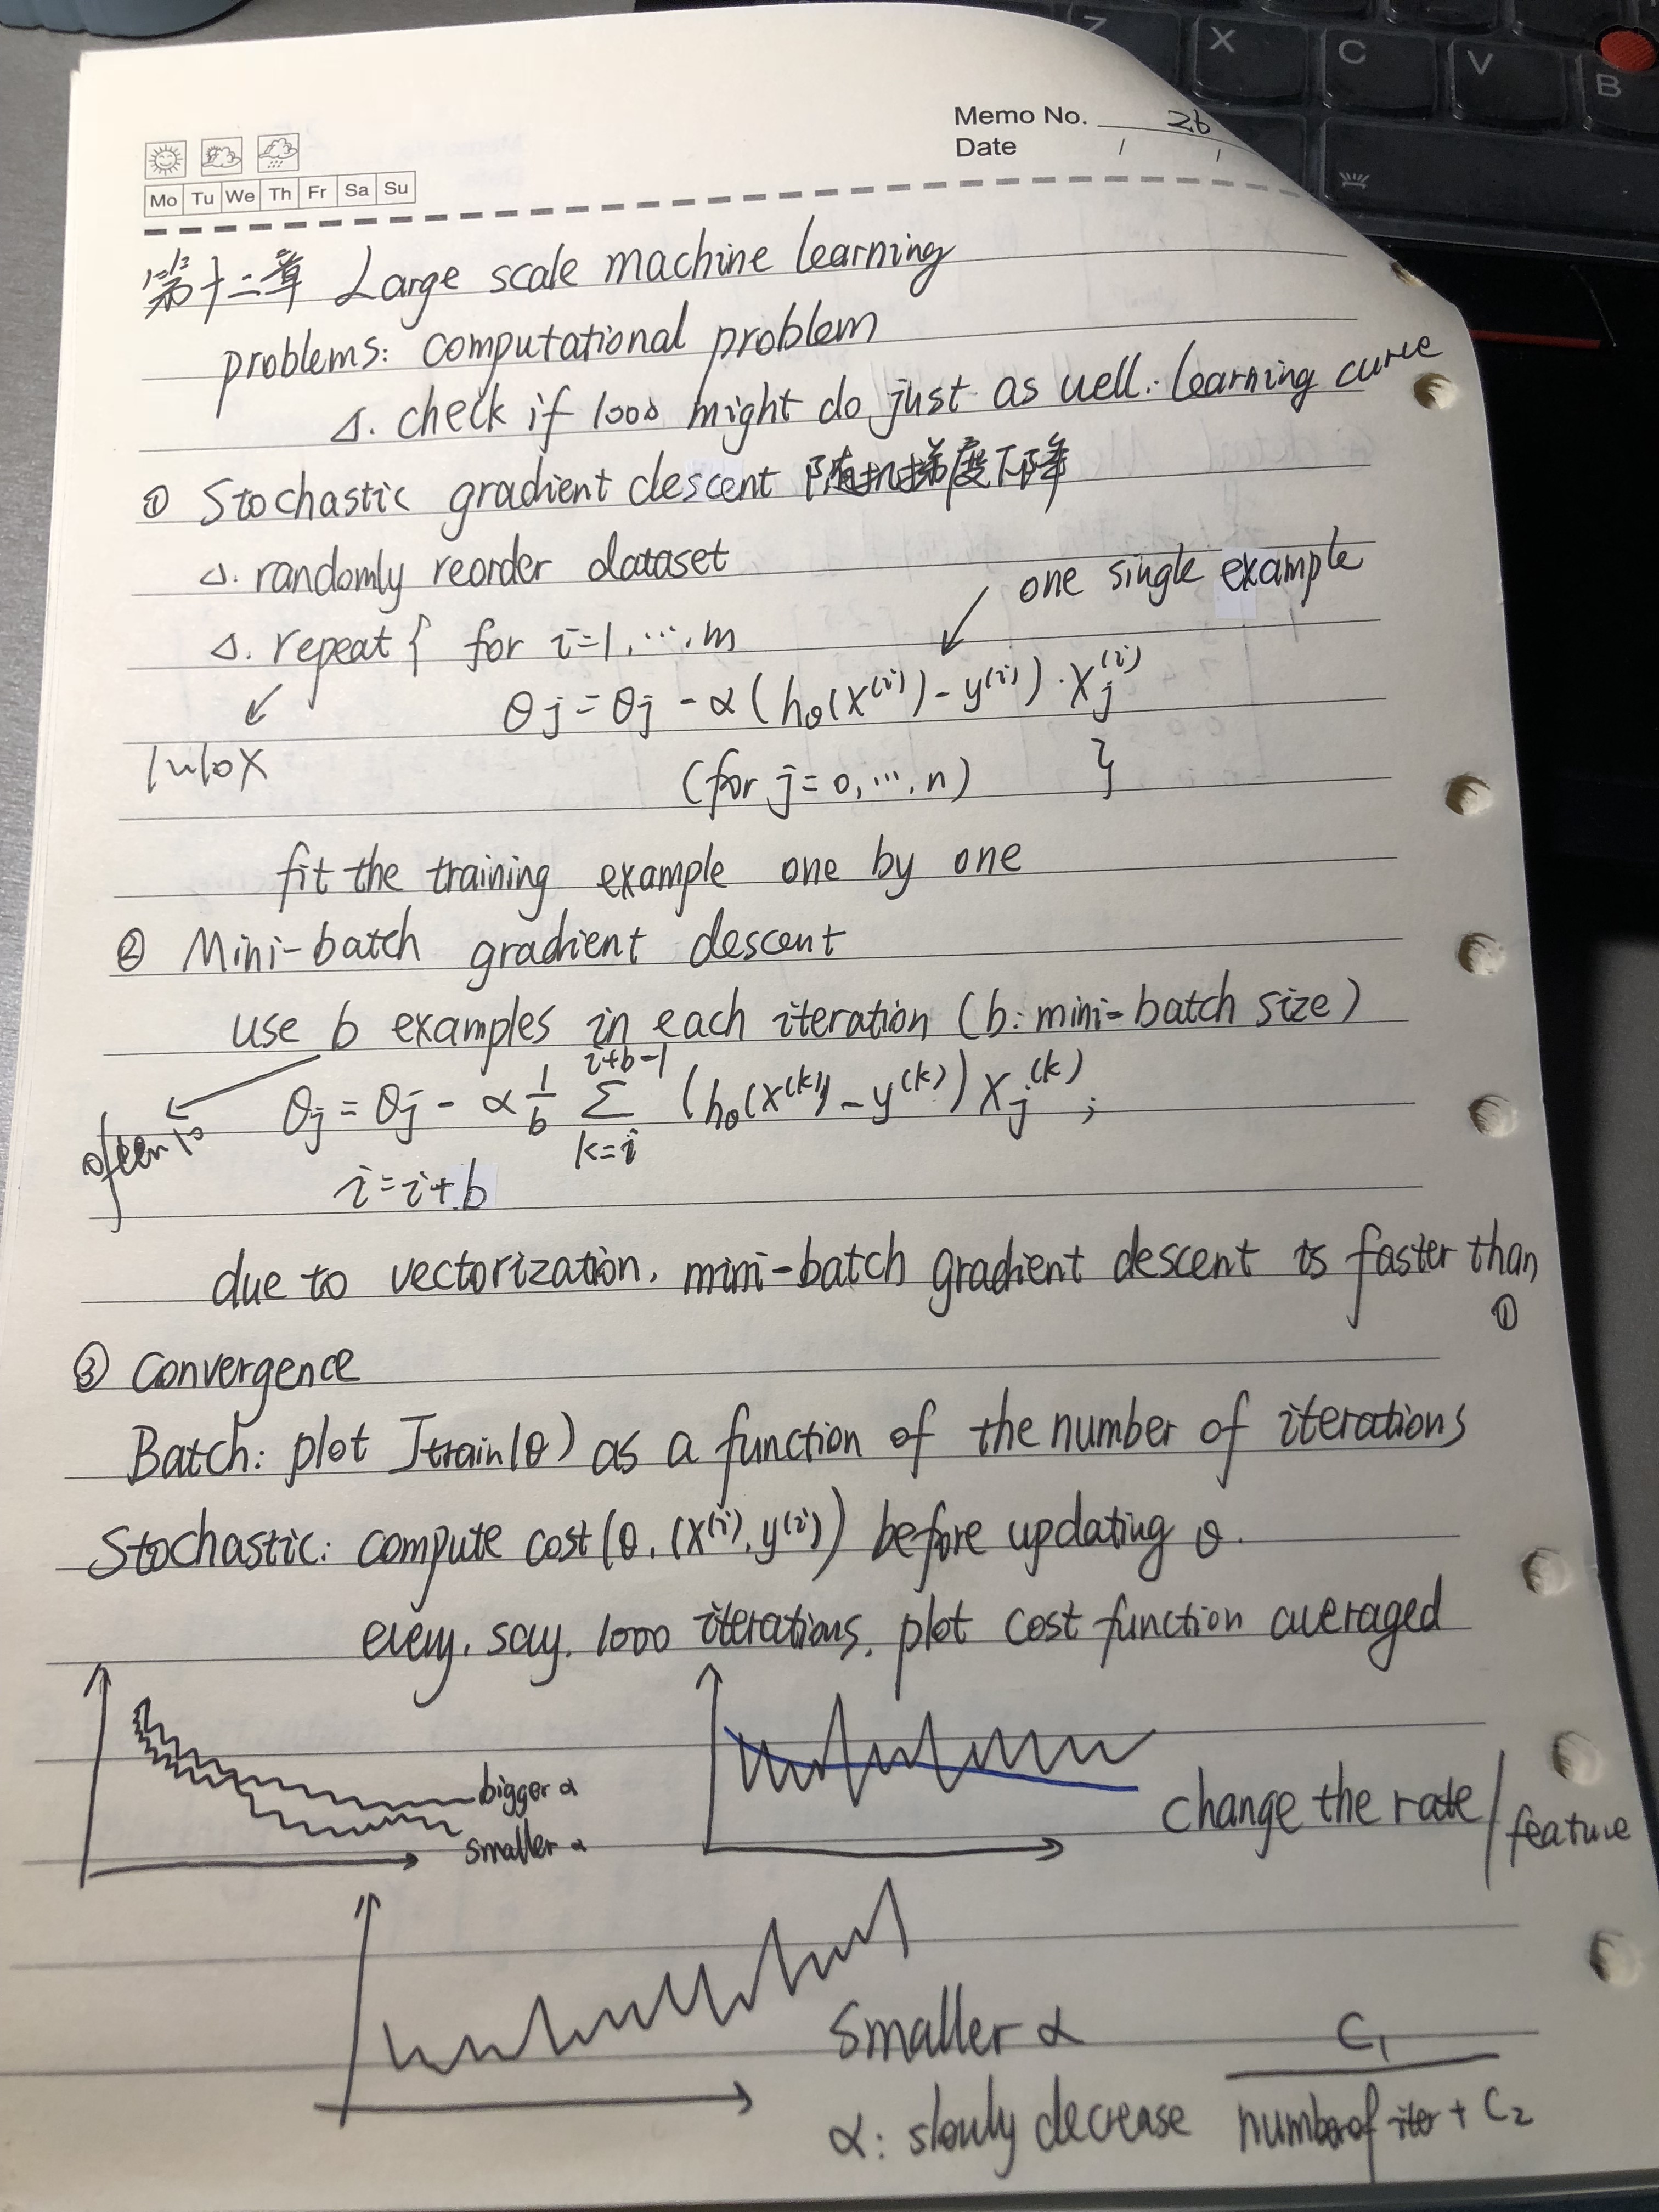 Z X C V B
Memo No. 26
Date / /
Mo Tu We Th Fr Sa Su
第十二章 Large scale machine learning
problems: computational problem
△. check if 1000 might do just as well: learning curve
① Stochastic gradient descent 随机梯度下降
△. randomly reorder dataset
one single example
△. repeat { for i=1, ..., m
θj = θj - α (hθ(x^(i)) - y^(i)) · xj^(i)
1~10X
(for j=0, ..., n) }
fit the training example one by one
② Mini-batch gradient descent
use b examples in each iteration (b: mini-batch size)
θj = θj - α 1/b Σ_{k=i}^{i+b-1} (hθ(x^(k)) - y^(k)) xj^(k) ;
often 10
i = i+b
due to vectorization, mini-batch gradient descent is faster than ①
③ Convergence
Batch: plot Jtrain(θ) as a function of the number of iterations
Stochastic: compute cost(θ, (x^(i), y^(i))) before updating θ.
every, say, 1000 iterations, plot cost function averaged
bigger α
smaller α
change the rate / feature
Smaller α
α: slowly decrease C1 / (number of iter + C2)